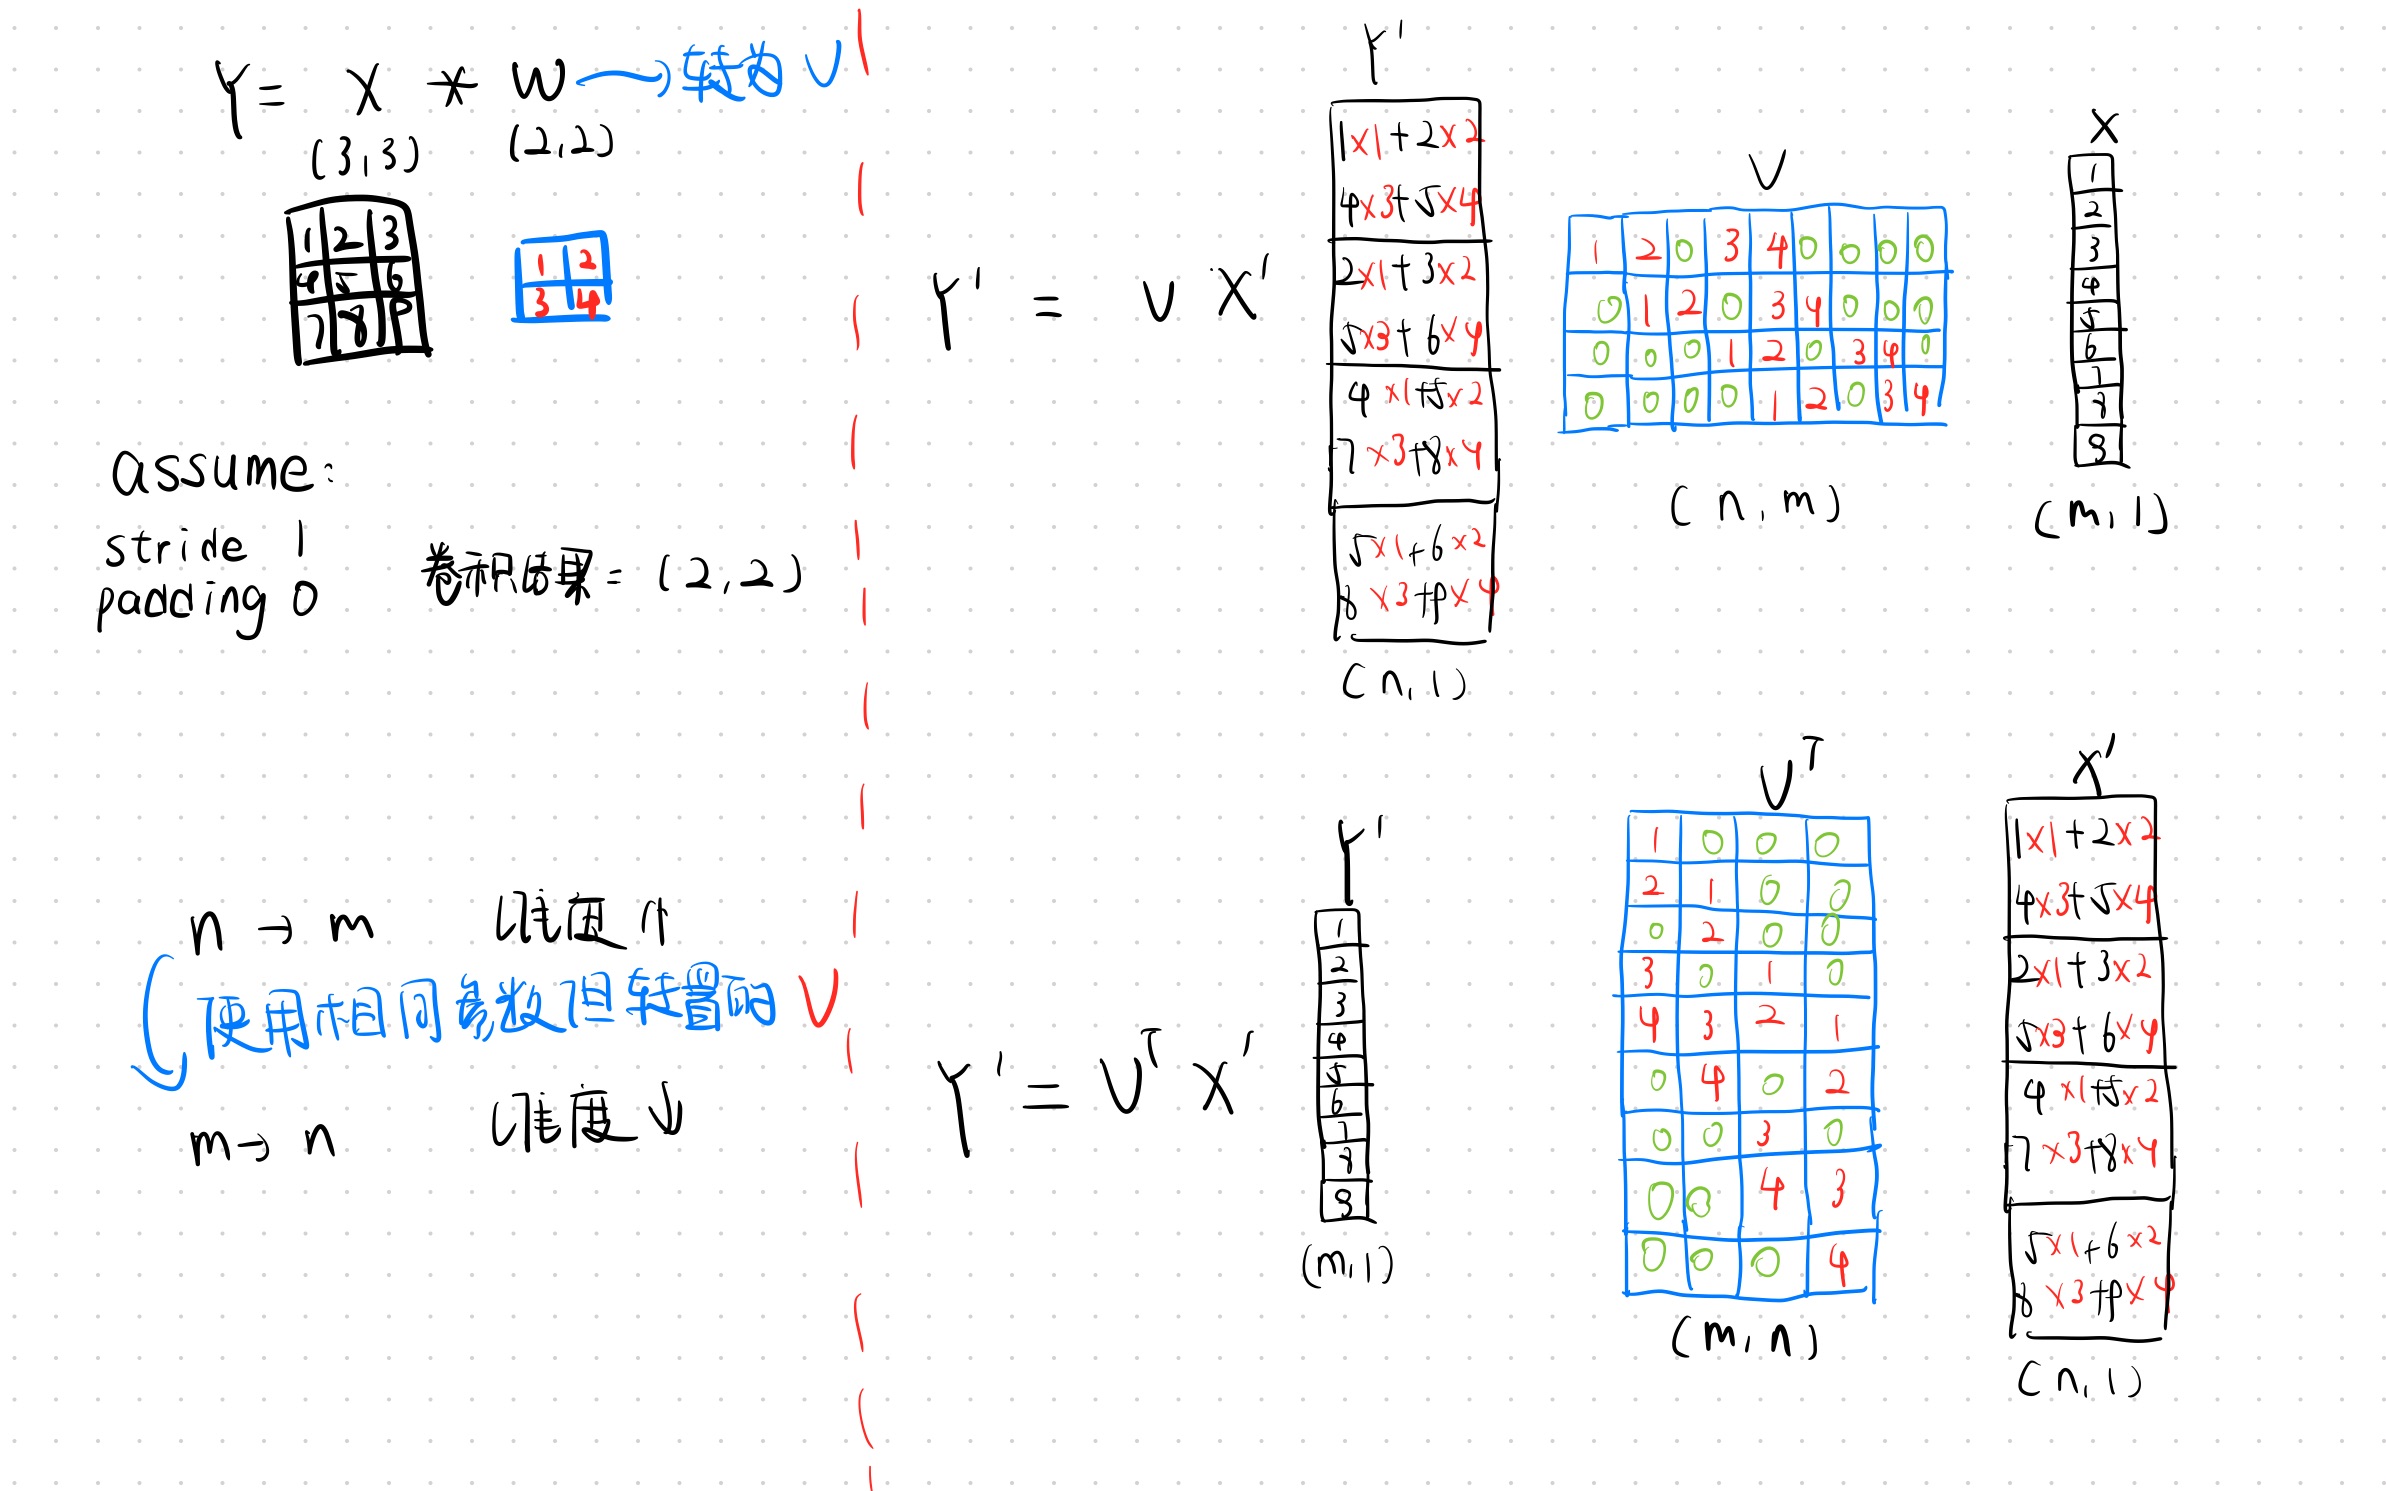 Y = X * W → 转为 V
(3,3) (2,2)
1 2 3
4 5 6
7 8 9
1 2
3 4
assume:
stride 1
padding 0
卷积结果 = (2,2)
n → m 维度 ↑
使用相同参数但转置的 V
m → n 维度 ↓
Y' = V X'
Y'
1×1+2×2
4×3+5×4
2×1+3×2
5×3+6×4
4×1+5×2
7×3+8×4
5×1+6×2
8×3+9×4
(n,1)
V
1 2 0 3 4 0 0 0 0
0 1 2 0 3 4 0 0 0
0 0 0 1 2 0 3 4 0
0 0 0 0 1 2 0 3 4
(n,m)
X
1
2
3
4
5
6
7
8
9
(m,1)
Y' = V^T X'
Y'
1
2
3
4
5
6
7
8
9
(m,1)
V^T
1 0 0 0
2 1 0 0
0 2 0 0
3 0 1 0
4 3 2 1
0 4 0 2
0 0 3 0
0 0 4 3
0 0 0 4
(m,n)
X'
1×1+2×2
4×3+5×4
2×1+3×2
5×3+6×4
4×1+5×2
7×3+8×4
5×1+6×2
8×3+9×4
(n,1)